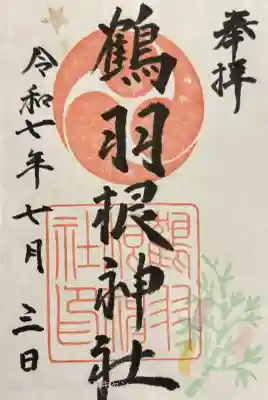 奉拝
鶴羽根神社
令和七年七月三日
鶴羽根神社印